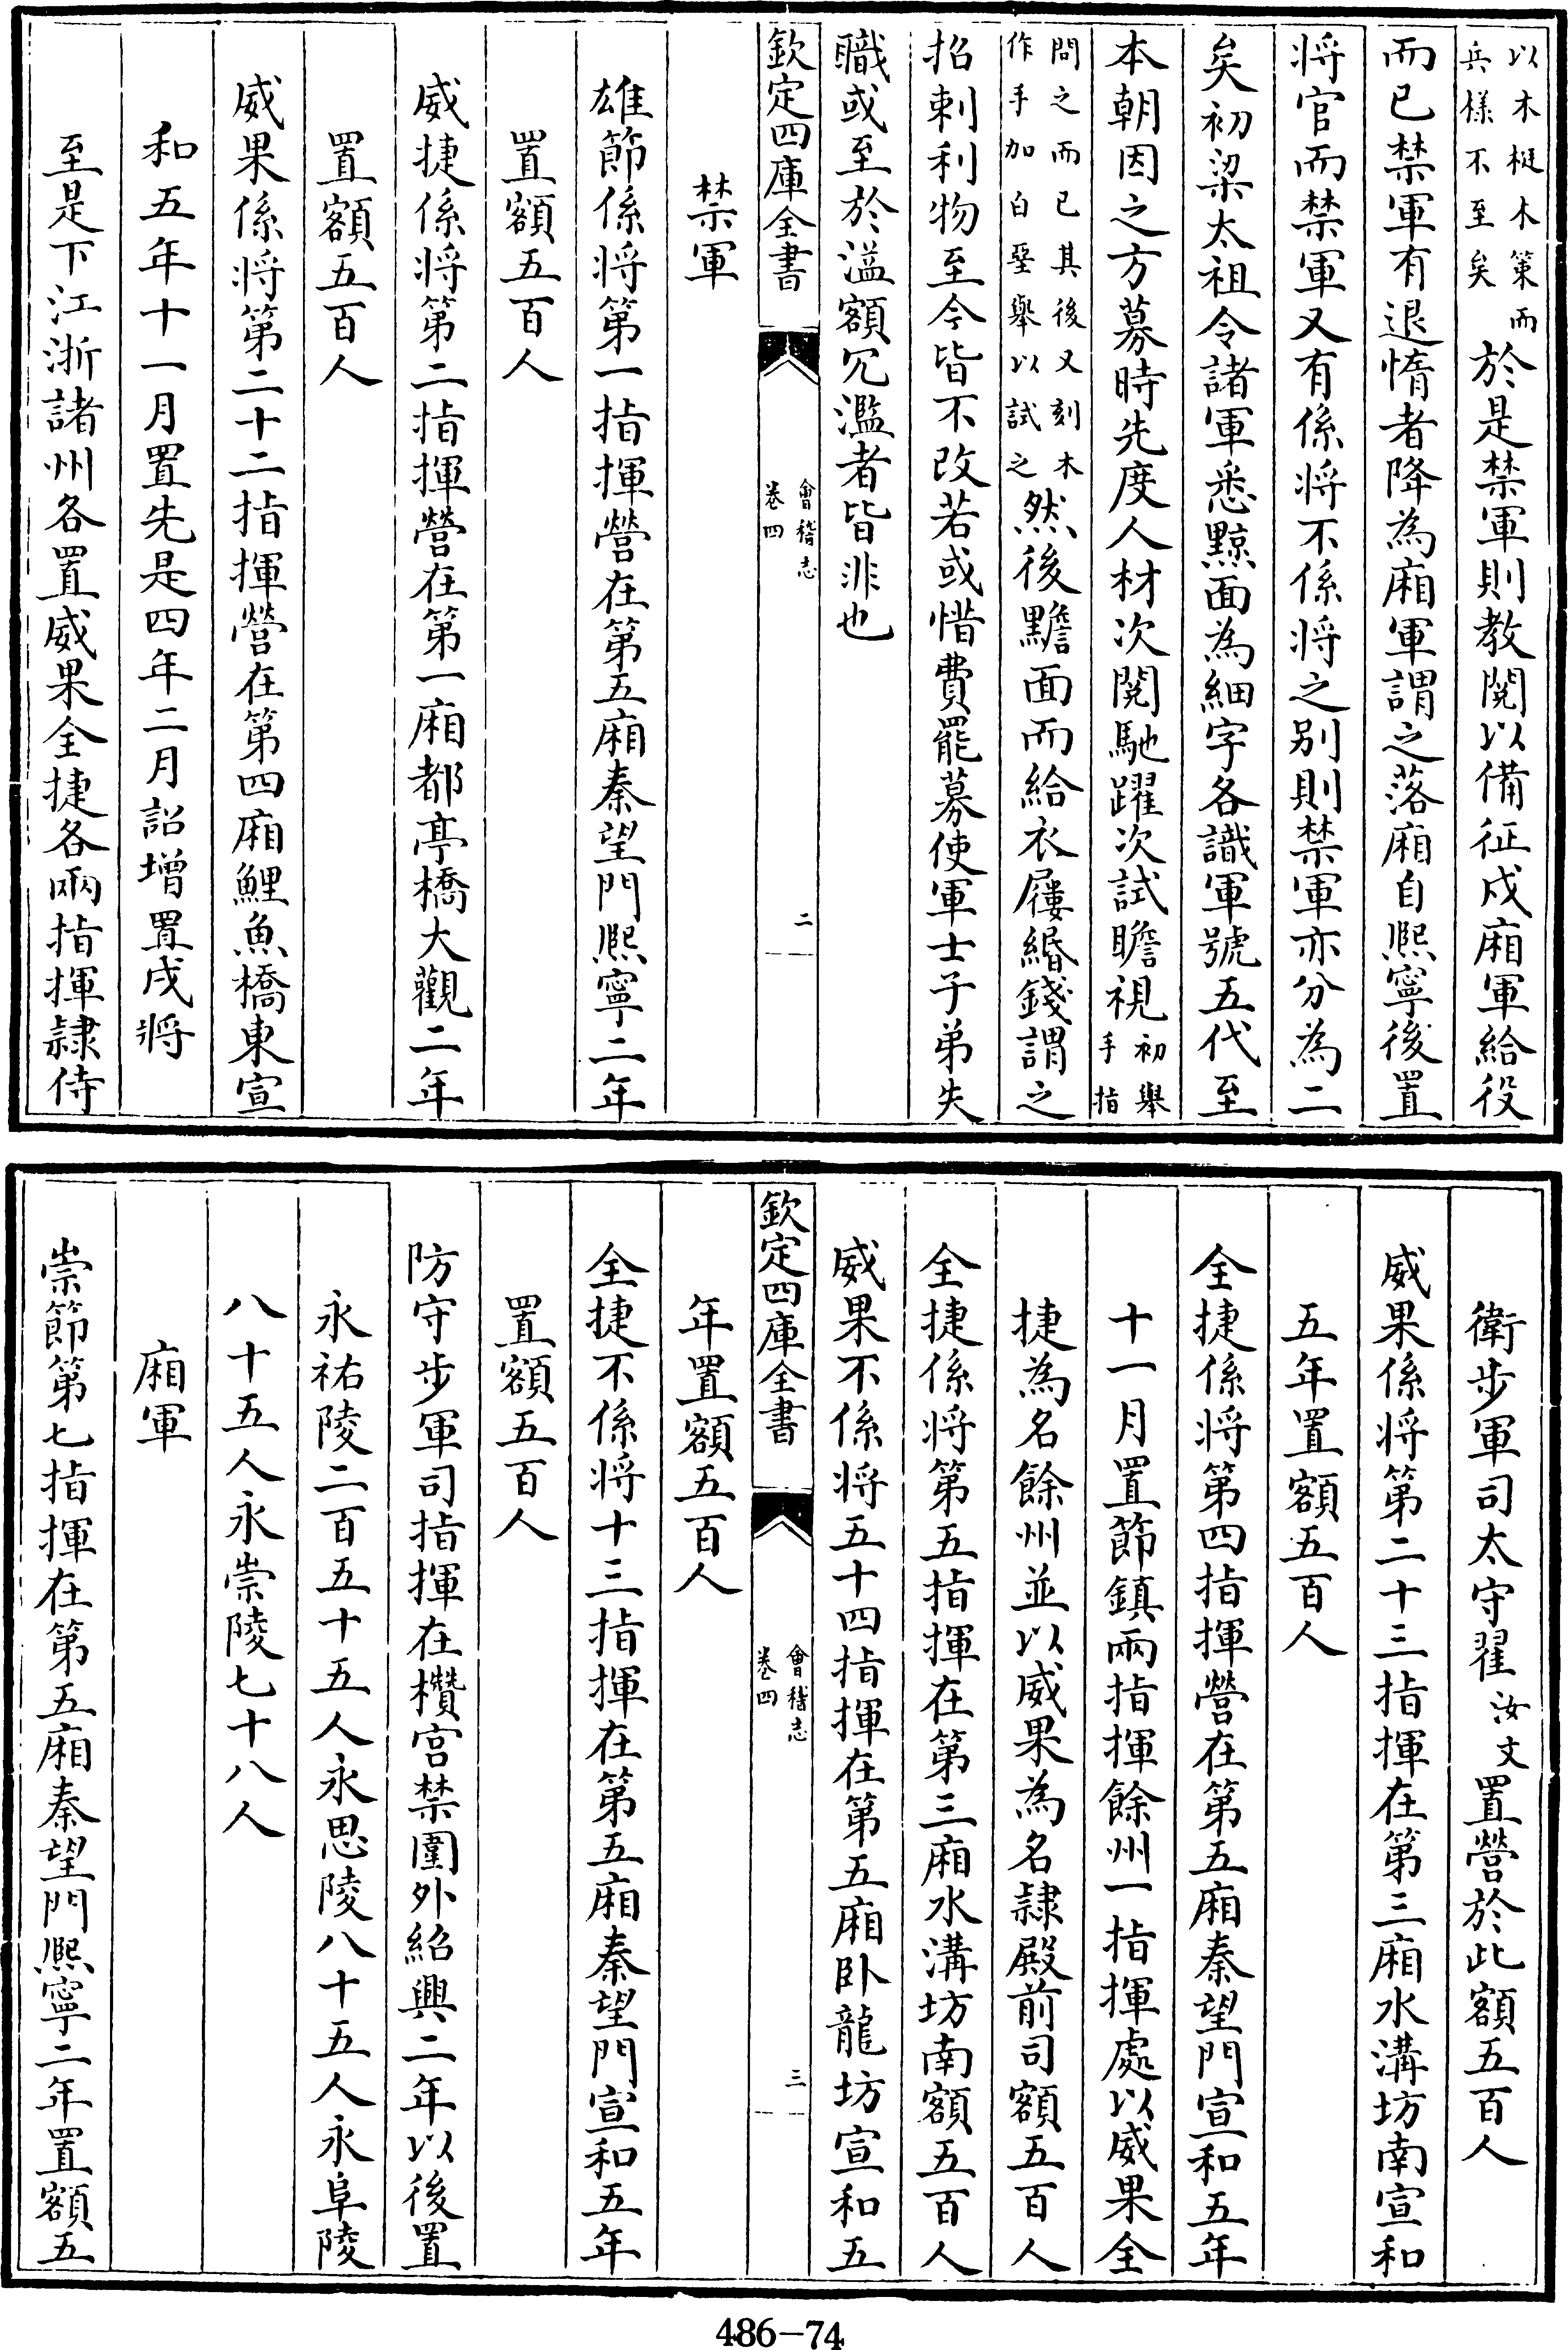 以木梃木策而
兵樣不至矣
於是禁軍則教閱以備征戍廂軍給役
而已禁軍有退惰者降為廂軍謂之落廂自熙寧後置
将官而禁軍又有係将不係将之别則禁軍亦分為二
矣初梁太祖令諸軍悉黥面為細字各識軍號五代至
本朝因之方募時先度人材次閱馳躍次試瞻視
初舉
手指
問之而已其後又刻木
作手加白堊舉以試之
然後黵面而給衣屨緡錢謂之
招刺利物至今皆不改若或惜費罷募使軍士子弟失
職或至於溢額冗濫者皆非也
欽定四庫全書
會稽志
卷四
二
禁軍
雄節係将第一指揮營在第五廂秦望門熙寧二年
置額五百人
威捷係将第二指揮營在第一廂都亭橋大觀二年
置額五百人
威果係将第二十二指揮營在第四廂鯉魚橋東宣
和五年十一月置先是四年二月詔增置戍將
至是下江浙諸州各置威果全捷各兩指揮隸侍
衛步軍司太守翟
汝文
置營於此額五百人
威果係将第二十三指揮在第三廂水溝坊南宣和
五年置額五百人
全捷係将第四指揮營在第五廂秦望門宣和五年
十一月置節鎮兩指揮餘州一指揮處以威果全
捷為名餘州並以威果為名隸殿前司額五百人
全捷係将第五指揮在第三廂水溝坊南額五百人
威果不係将五十四指揮在第五廂卧龍坊宣和五
欽定四庫全書
會稽志
卷四
三
年置額五百人
全捷不係将十三指揮在第五廂秦望門宣和五年
置額五百人
防守步軍司指揮在欑宮禁圍外紹興二年以後置
永祐陵二百五十五人永思陵八十五人永阜陵
八十五人永崇陵七十八人
廂軍
崇節第七指揮在第五廂秦望門熙寧二年置額五
486-74